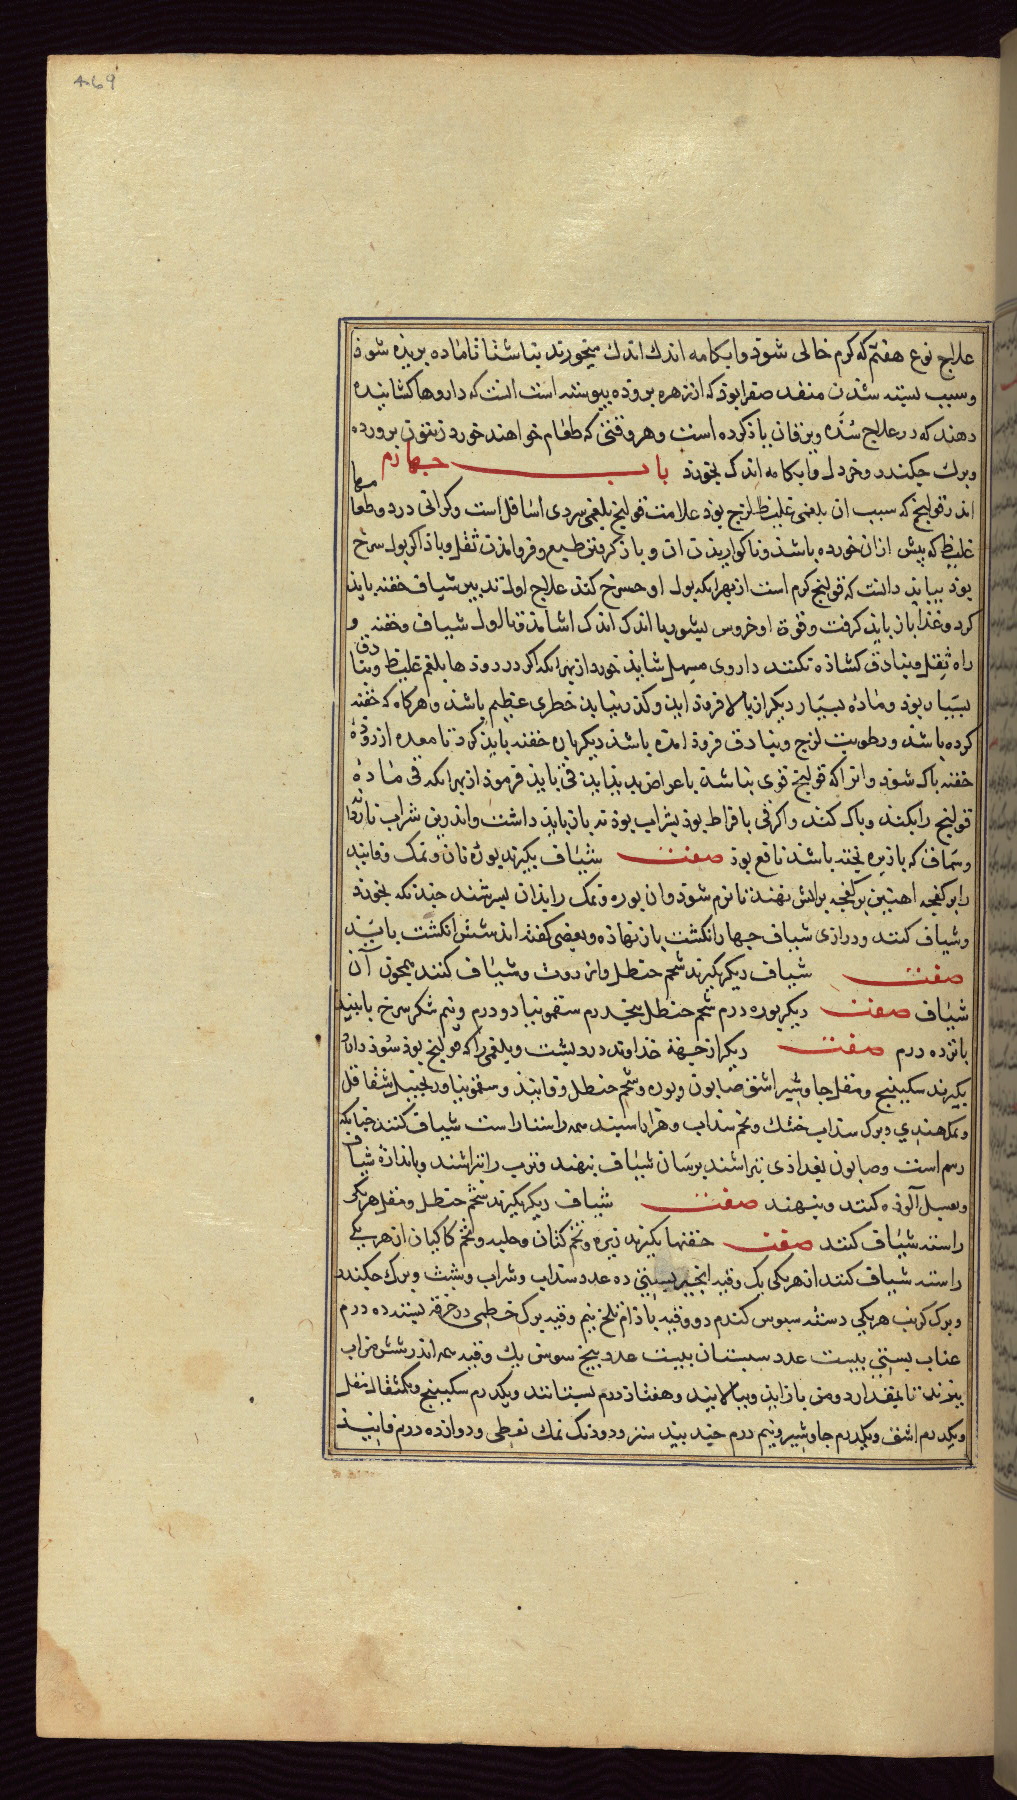 469
علاج نوع هفتم که کرم خالی شود وابکامه اندك اندك میخورند بناشتا تا ماده بریذه شوذ
وسبب بسته شدن منفذ صفرا بوذ که از زهره بروده پیوسته است انست که داروها کشاینده
دهند که در علاج سده ویرقان یاذ کرده است وهروقتی که طعام خواهند خورد زیتون پرورده
وبرك چکندر وخردل وابکامه اندك بخورند باب چهارم
اندر قولنج که سبب ان بلغمی غلیظ لزج بوذ علامت قولنج بلغمی سردی اسافل است وکرانی درد وطعامها
غلیظ که پیش ازان خورده باشذ وناکواریذن ان وباز کرفتن طبع وفروماندن ثقل وباذ اکر بول سرخ
بوذ نبایذ دانست که قولنج کرم است از بهر انکه بول او سرخ کند علاج اول تدبیر شیاف حقنه بایذ
کرد وغذا باز بایذ کرفت وقوة اوخروس بشوربا اندك اندك اشامذن اول شیاف وحقنه و
راه ثقل وبنادق کشاذه نکنند داروی مسهل نشایذ خورد از بهر انکه اکر در روذها بلغم غلیظ وبنادق
بسیار بوذ وماده بسیار دیکر از بالا فروذ ایذ وکذر نیابذ خطری عظیم باشذ وهرکاه که حقنه
کرده باشذ ورطوبت لزج وبنادق فروذ امذه باشذ دیکرباره حقنه بایذ کرد تا معده از
حقنه پاك شوذ وانرا که قولنج قوی نباشد با عراض بد نبایذ قی بایذ فرموذ از بهر انکه قی ماده
قولنج را بکند وپاك کند واکر قی بافراط بوذ بشراب بوذنه باز بایذ داشت واندرین شراب نار
وسماق که با زیره پخته باشند نافع بوذ صفت شیاف بکیرند بوره نان ونمك وفانیذ
را بر کفچه اهنین بر کفچه براتش نهند تا نرم شوذ وان بوره ونمك را بذان بسرشند چندانکه بخورذ
وشیاف کنند ودرازی شیاف چهار انکشت باز نهاذه وبعضی کفته اند شش انکشت بایذ
صفت شیاف دیکر بکیرند شحم حنظل وانزروت وشیاف کنند همچون آن
شیاف صفت دیکر بوره درم شحم حنظل پنجدرم سقمونیا دو درم ونیم شکر سرخ یا فانیذ
پانزده درم صفت دیکر از جهة خذاوند درد پشت وبلغمی را که قولنج بوذ سوذ دارذ
بکیرند سکبینج ومقل جاوشیر اشق صابون وبوره وشحم حنطل وفانیذ وسقمونیا وزنجبیل شقاقل
ونمك هندی وبرك سداب خشك وتخم سداب وهزاراسپند همه راستا راست شیاف کنند چنانکه
رسم است وصابون بغداذی بتراشند برسان شیاف بنهند وترب را بتراشند وباندازه شیاف
وبعسل آلوذه کنند وبنهند صفت شیاف دیکر بکیرند شحم حنطل ومقل هریکی
راسته شیاف کنند صفت حقنها بکیرند زیره وتخم کتان وحلبه وتخم کاکیان از هر یکی
راسته شیاف کنند از هریکی یك وقیه انجیر بستی ده عدد سداب وشراب وشبث وبرك چکندر
وبرك کرنب هریکی دسته سبوس کندم دو وقیه باذام تلخ نیم وقیه برك خطمی در خرقه بسته ده درم
عناب بستی بیست عدد سبستان بیست عدد بیخ سوس یك وقیه همه اندر شش من اب
بپزند تا بمقدار دو من بازایذ وبپالایند وهفتاذ درم بستانند ویکدرم سکبینج ویکمثقال مقل
ویکدرم اشق ویکدرم جاوشیر ونیم درم جند بیدستر ودودنك نمك نفطی ودوازده درم فانیذ